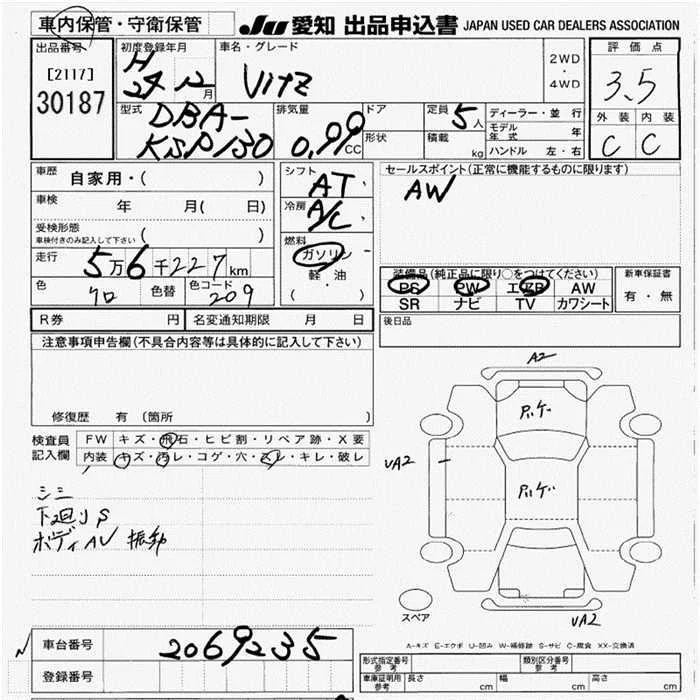 車内保管・守衛保管
JU 愛知 出品申込書 JAPAN USED CAR DEALERS ASSOCIATION
出品番号
[2117]
30187
初度登録年月
H
24 12月
車名・グレード
Vitz
2WD
・
4WD
評価点
3.5
外装 内装
C C
型式
DBA-
KSP130
排気量
0.99 CC
ドア
形状
定員 5人
積載 kg
ディーラー・並行
モデル年式 年
ハンドル 左・右
車歴 自家用・( )
車検 年 月( 日)
受検形態
車検付きのみ記入して下さい ( )
走行 5万6千227km
色 クロ 色替 色コード 209
シフト
AT
冷房
A/C
燃料
ガソリン
軽・油
( )
セールスポイント(正常に機能するものに限ります)
AW
装備品(純正品に限り○をつけてください)
PS PW エアB AW
SR ナビ TV カワシート
新車保証書
有・無
後日品
R券 円 名変通知期限 月 日
注意事項申告欄(不具合内容等は具体的に記入して下さい)
修復歴 有 (箇所
検査員
記入欄
FW キズ・飛石・ヒビ割・リペア跡・X要
内装 キズ・汚レ・コゲ・穴・スレ・キレ・破レ
シミ
下廻りS
ボディAU 振動
A2
UA2
UA2
スペア
A-キズ E-エクボ U-凹み W-補修跡 S-サビ C-腐食 XX-交換済
車台番号 2069235
登録番号
形式指定番号
参考
類別区分番号
参考
車庫証明用
参考
長さ cm 幅 cm 高さ cm